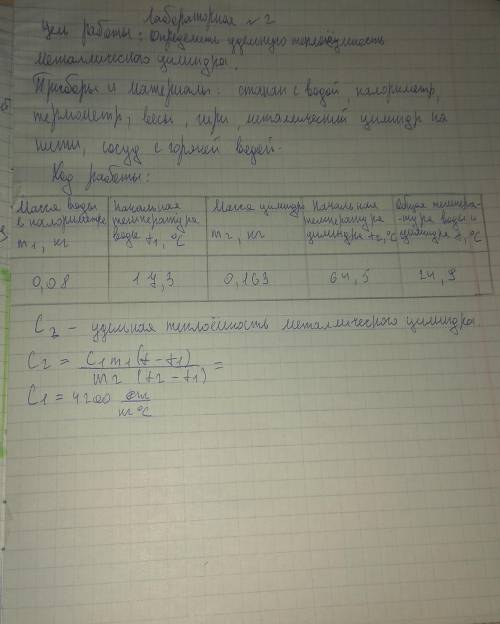 Лабораторная №2
Цель работы: Определить удельную теплоёмкость
металлического цилиндра.
Приборы и материалы: стакан с водой, калориметр,
термометр, весы, гири, металический цилиндр на
нити, сосуд с горячей водой.
Ход работы:
Масса воды в калориметре m1, кг
Начальная температура воды t1, °C
Масса цилиндра m2, кг
Начальная температура цилиндра t2, °C
Общая температура воды и цилиндра t, °C
0,08 17,3 0,163 64,5 24,9
C2 – удельная теплоёмкость металлического цилиндра.
C2 = C1m1(t-t1) / m2 (t2-t1) =
C1 = 4200 Дж/кг°C